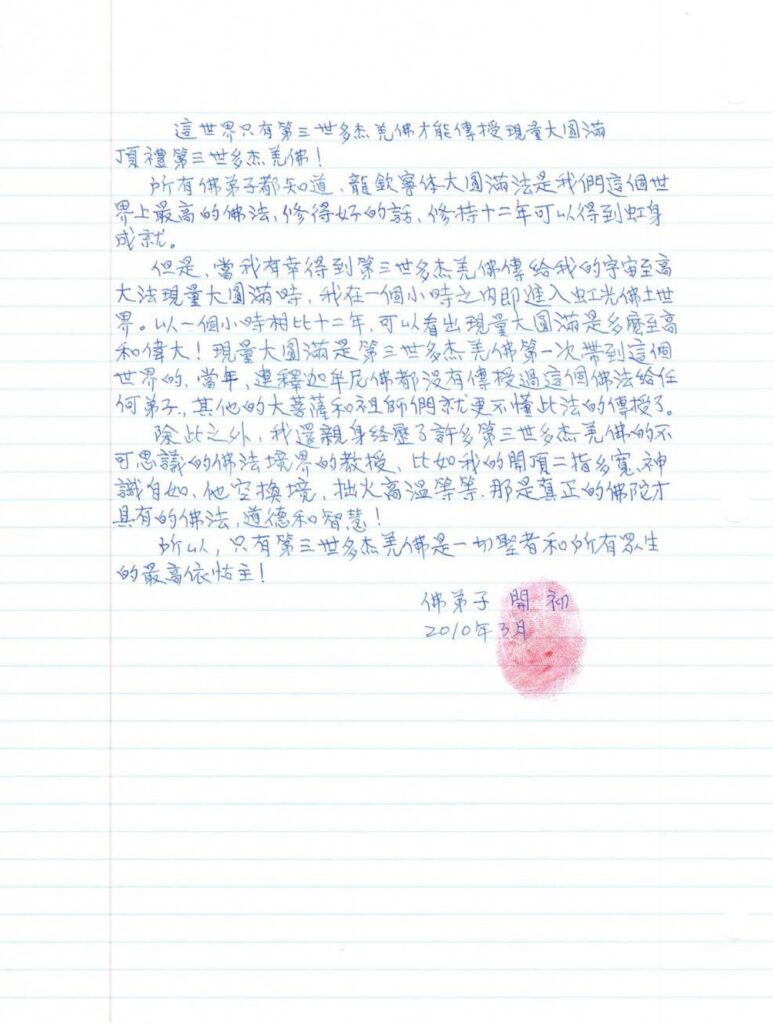 這世界只有第三世多杰羌佛才能傳授現量大圓滿
頂禮第三世多杰羌佛！
所有佛弟子都知道、龍欽寧体大圓滿法是我們這個世
界上最高的佛法，修得好的話、修持十二年可以得到虹身
成就。
但是，當我有幸得到第三世多杰羌佛傳給我的宇宙至高
大法現量大圓滿時，我在一個小時之內即進入虹光佛土世
界。以一個小時相比十二年，可以看出現量大圓滿是多麼至高
和偉大！現量大圓滿是第三世多杰羌佛第一次帶到這個
世界的，當年，連釋迦牟尼佛都沒有傳授過這個佛法給任
何弟子，其他的大菩薩和祖師們就更不懂此法的傳授了。
除此之外，我還親身经歷了許多第三世多杰羌佛的不
可思議的佛法境界的教授、比如我的開頂二指多寬、神
識自如、他空換境，拙火高溫等等，那是真正的佛陀才
具有的佛法，道德和智慧！
所以，只有第三世多杰羌佛是一切聖者和所有眾生
的最高依怙主！
佛弟子 開 初
2010年3月